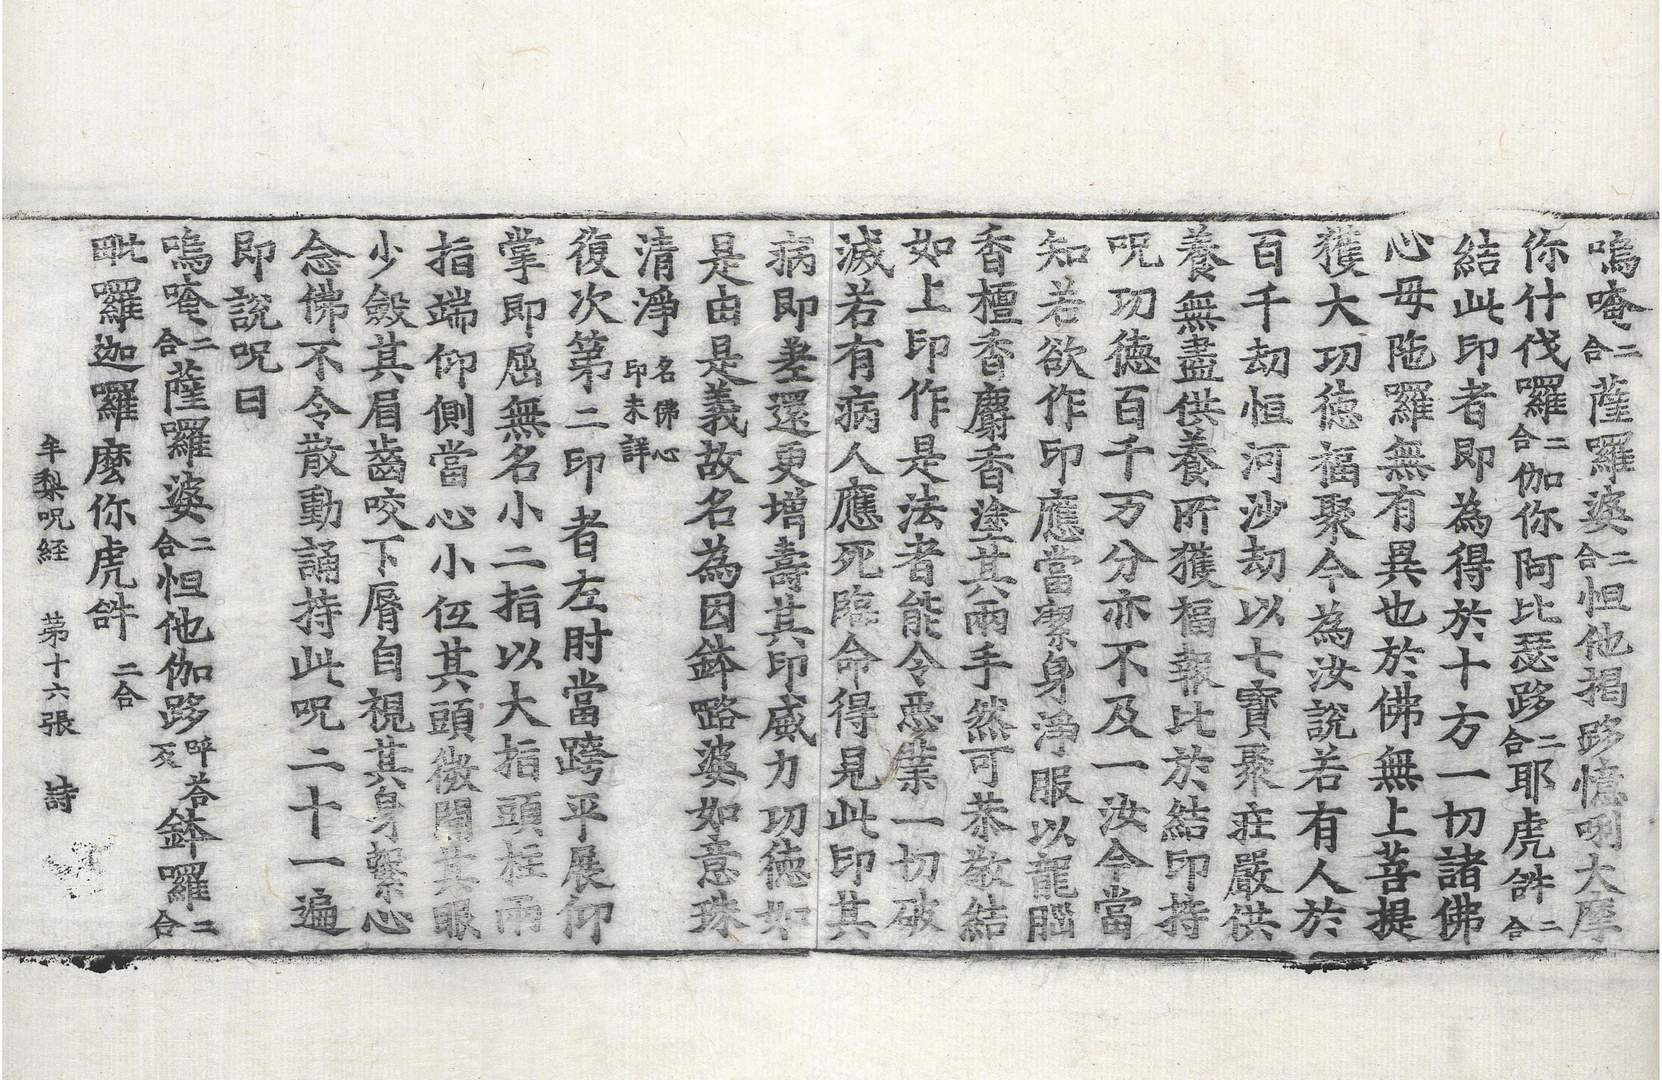 嗚唵二合薩囉婆二合怛他揭跢憶唎大摩
你什伐囉二合伽你阿比瑟跢二合耶虎𤙖二合
結此印者即為得於十方一切諸佛
心毋陁羅無有異也於佛無上菩提
獲大功德福聚今為汝說若有人於
百千劫恒河沙劫以七寶聚莊嚴供
養無盡供養所獲福報比於結印持
呪功德百千万分亦不及一汝今當
知若欲作印應當潔身淨服以龍腦
香檀香麝香塗其兩手然可恭敬結
如上印作是法者能令惡業一切破
滅若有病人應死臨命得見此印其
病即差還更增壽其印威力功德如
是由是義故名為因鉢㗉婆如意珠
清淨名佛心印未詳
復次第二印者左肘當跨平展仰
掌即屈無名小二指以大指頭柱兩
指端仰側當心小伍其頭微開其眼
少斂其眉齒咬下脣自視其身繫心
念佛不令散動誦持此呪二十一遍
即說呪曰
嗚唵二合薩囉婆二合怛他伽跢呼荅反鉢囉二合
毗囉迦囉麼你虎𤙖二合
牟梨呪経　第十六張　詩